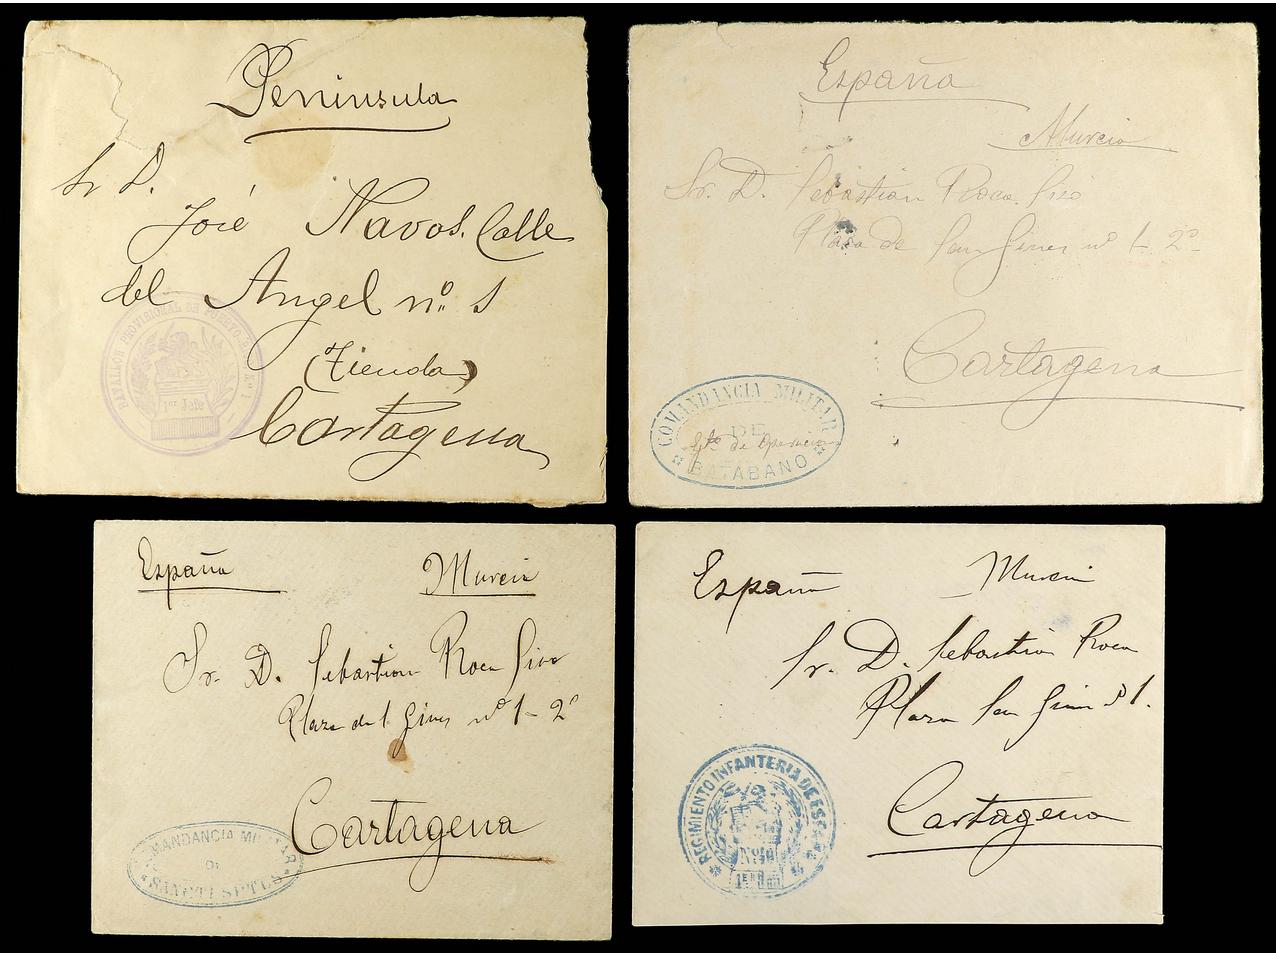 Peninsula
Sr D.
José Navos. Calle
del Angel nº. 1
(Tienda)
Cartagena
BATALLON PROVISIONAL DE PUERTO-RICO Nº 1
1er Jefe
España
Murcia
Sr. D. Sebastián Roca Giró
Plaza de San Gines nº 1- 2º
Cartagena
COMANDANCIA MILITAR
DE
BATABANO
España Murcia
Sr. D. Sebastian Roca Giro
Plaza de S. Gines nº 1- 2º
Cartagena
COMANDANCIA MILITAR
DE
España Murcia
Sr. D. Sebastian Roca
Plaza San Gines nº 1.
Cartagena
REGIMIENTO INFANTERIA DE